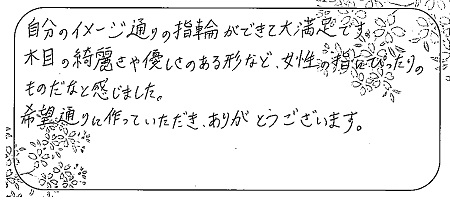 自分のイメージ通りの指輪ができて大満足です。
木目の綺麗さや優しさのある形など、女性の指にぴったりの
ものだなと感じました。
希望通りに作っていただき、ありがとうございます。